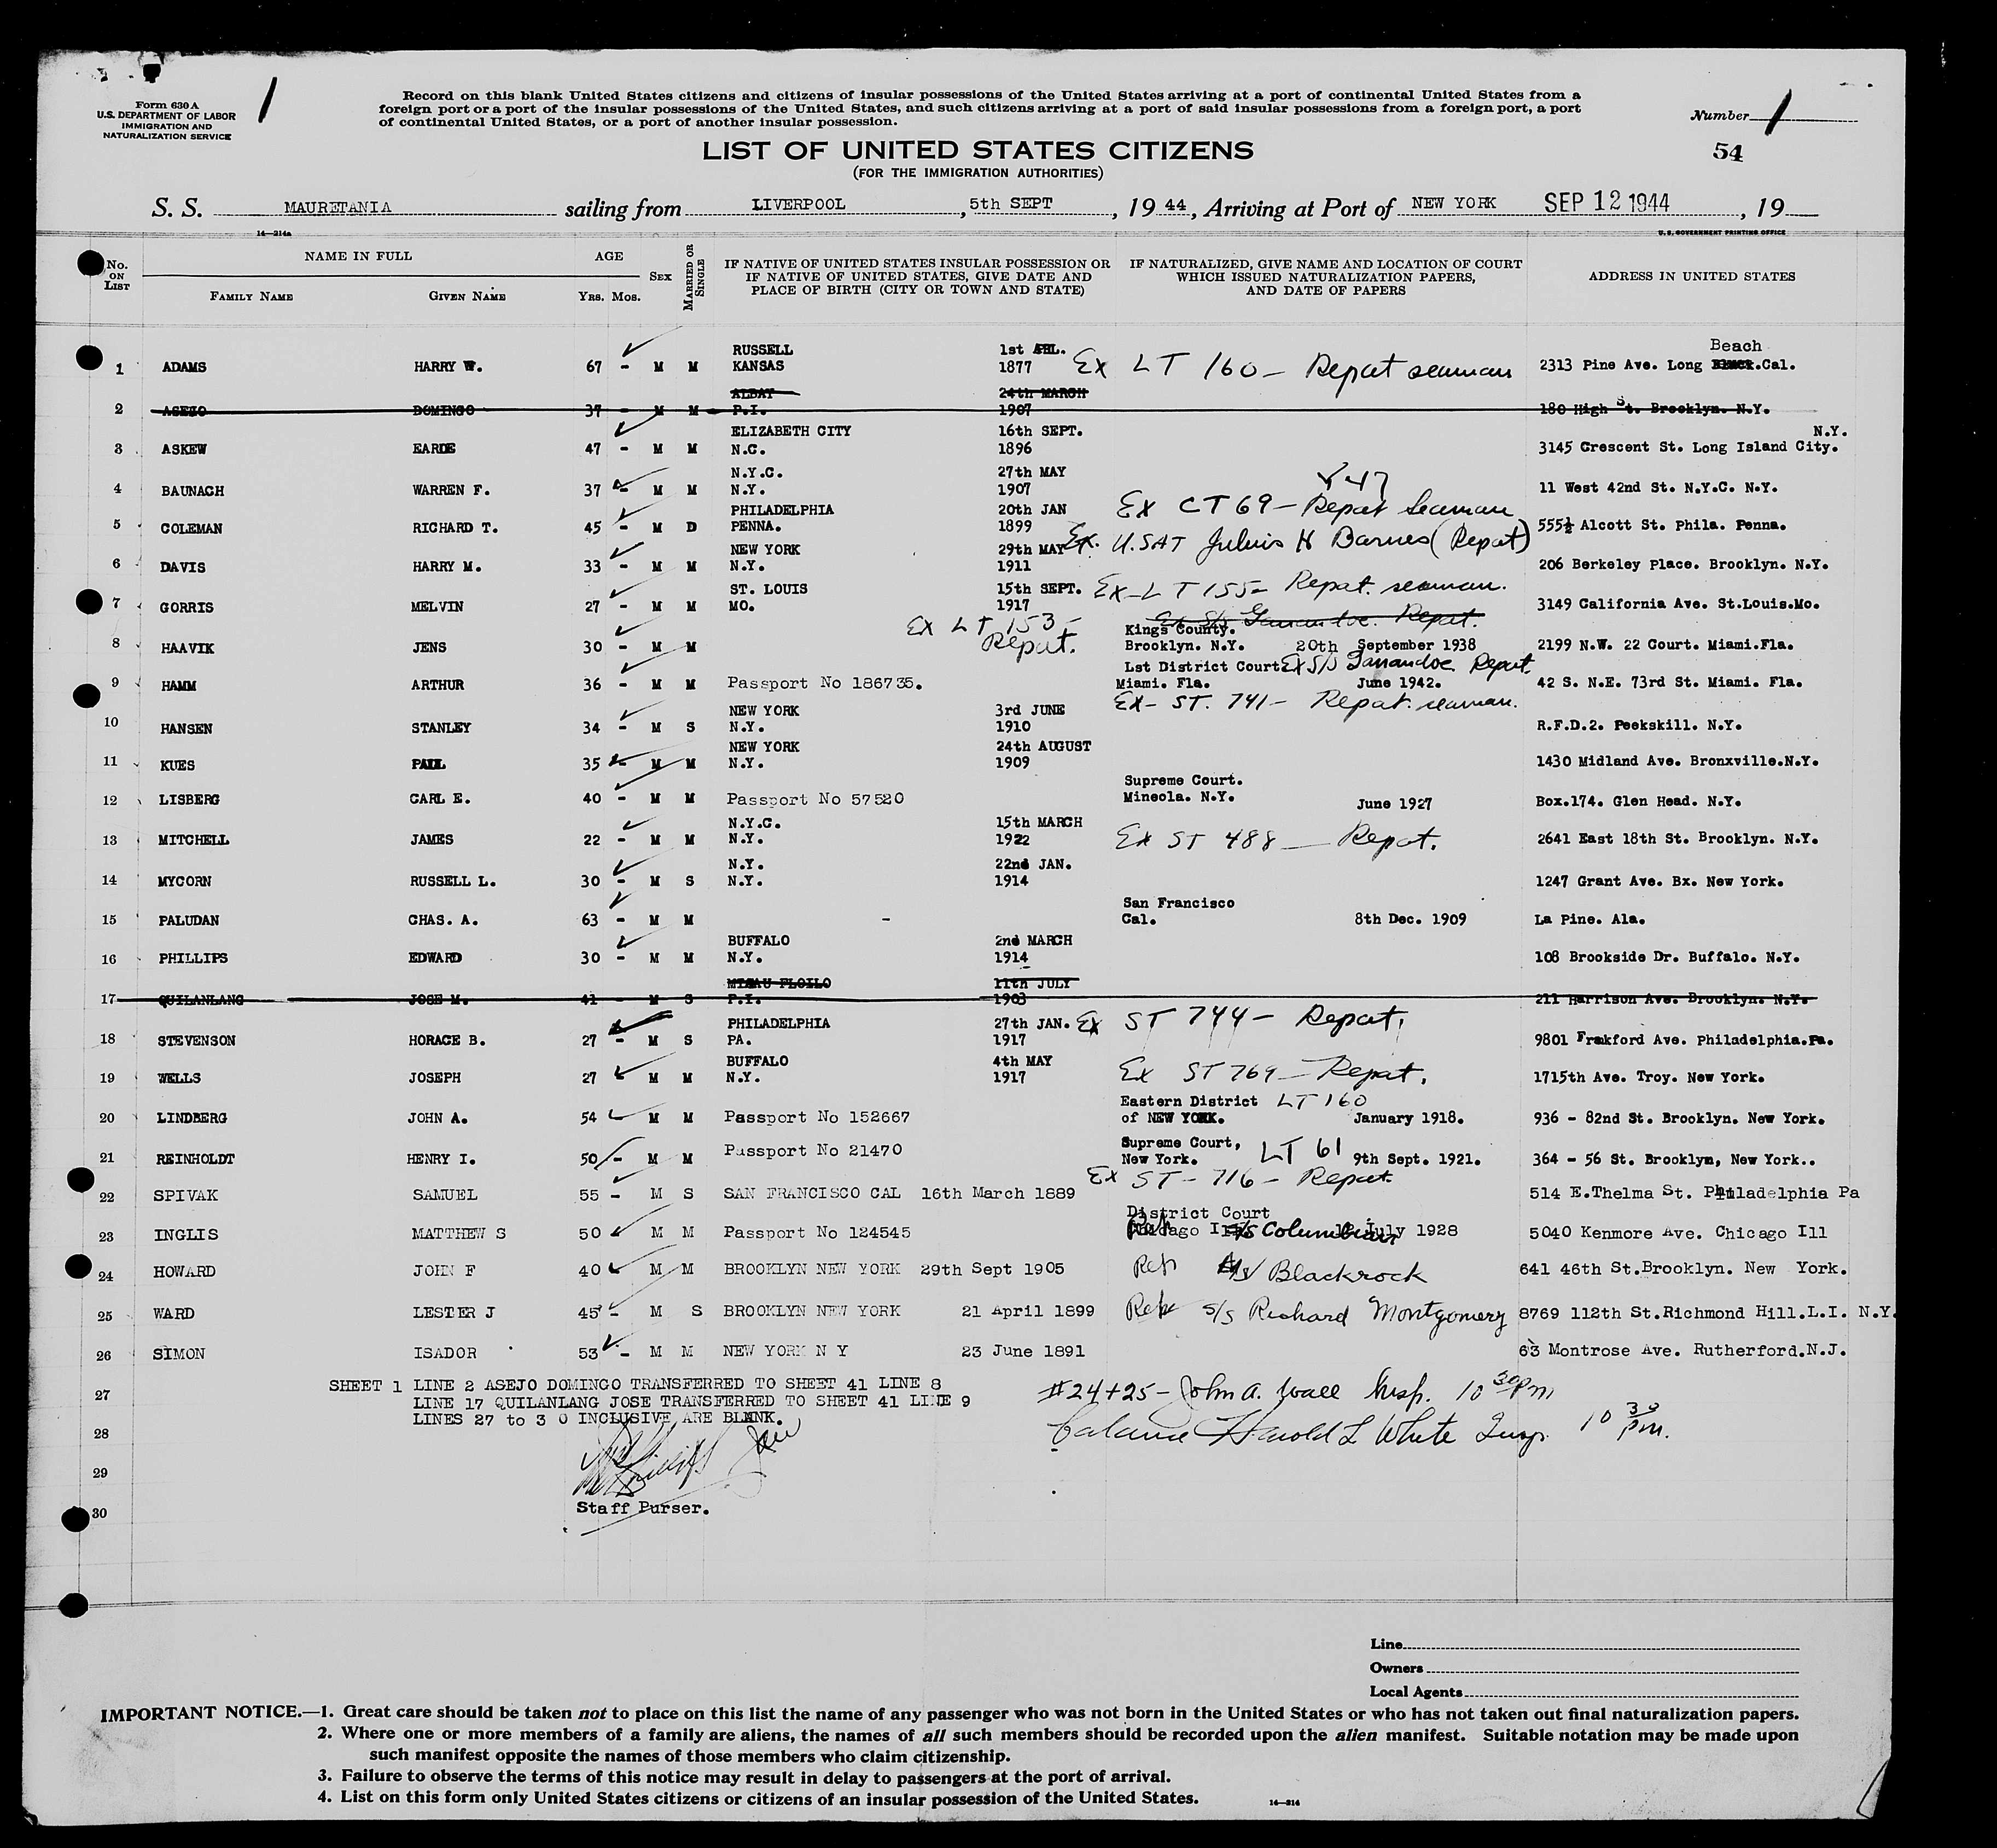 Form 630 A
U.S. DEPARTMENT OF LABOR
IMMIGRATION AND
NATURALIZATION SERVICE
1
Record on this blank United States citizens and citizens of insular possessions of the United States arriving at a port of continental United States from a
foreign port or a port of the insular possessions of the United States, and such citizens arriving at a port of said insular possessions from a foreign port, a port
of continental United States, or a port of another insular possession.
Number 1
54
LIST OF UNITED STATES CITIZENS
(FOR THE IMMIGRATION AUTHORITIES)
S. S. MAURETANIA sailing from LIVERPOOL, 5th SEPT, 19 44, Arriving at Port of NEW YORK SEP 12 1944, 19
14—214a
U. S. GOVERNMENT PRINTING OFFICE
No. ON LIST
NAME IN FULL
FAMILY NAME GIVEN NAME
AGE
YRS. MOS.
SEX
MARRIED OR SINGLE
IF NATIVE OF UNITED STATES INSULAR POSSESSION OR
IF NATIVE OF UNITED STATES, GIVE DATE AND
PLACE OF BIRTH (CITY OR TOWN AND STATE)
IF NATURALIZED, GIVE NAME AND LOCATION OF COURT
WHICH ISSUED NATURALIZATION PAPERS,
AND DATE OF PAPERS
ADDRESS IN UNITED STATES
RUSSELL 1st Beach
1 ADAMS HARRY W. 67 - M M KANSAS 1877 Ex LT 160 - Repat seaman 2313 Pine Ave. Long Cal.
ALBAY 24th MARCH
2 ASEJO DOMINGO 37 - M M P.I. 1907 180 High St. Brooklyn. N.Y.
ELIZABETH CITY 16th SEPT. N.Y.
3 ASKEW EARDE 47 - M M N.C. 1896 3145 Crescent St. Long Island City.
N.Y.C. 27th MAY
4 BAUNACH WARREN F. 37 - M M N.Y. 1907 11 West 42nd St. N.Y.C. N.Y.
PHILADELPHIA 20th JAN Ex CT 69 - Repat Seaman
5 COLEMAN RICHARD T. 45 - M D PENNA. 1899 555½ Alcott St. Phila. Penna.
NEW YORK 29th MAY Ex. U.SAT Julius H Barnes (Repat)
6 DAVIS HARRY M. 33 - M M N.Y. 1911 206 Berkeley Place. Brooklyn. N.Y.
ST. LOUIS 15th SEPT. Ex-LT 155- Repat. seaman.
7 GORRIS MELVIN 27 - M M MO. 1917 3149 California Ave. St.Louis.Mo.
Ex LT 153 - Kings County.
8 HAAVIK JENS 30 - M M Repat. Brooklyn. N.Y. 20th September 1938 2199 N.W. 22 Court. Miami.Fla.
Lst District Court Ex S/S Repat
9 HAMM ARTHUR 36 - M M Passport No 186735. Miami. Fla. June 1942. 42 S. N.E. 73rd St. Miami. Fla.
NEW YORK 3rd JUNE Ex- ST. 741- Repat. seaman.
10 HANSEN STANLEY 34 - M S N.Y. 1910 R.F.D.2. Peekskill. N.Y.
NEW YORK 24th AUGUST
11 KUES PAUL 35 - M M N.Y. 1909 1430 Midland Ave. Bronxville.N.Y.
Supreme Court.
12 LISBERG CARL E. 40 - M M Passport No 57520 Mineola. N.Y. June 1927 Box.174. Glen Head. N.Y.
N.Y.C. 15th MARCH
13 MITCHELL JAMES 22 - M M N.Y. 1922 Ex ST 488 — Repat. 2641 East 18th St. Brooklyn. N.Y.
N.Y. 22nd JAN.
14 MYCORN RUSSELL L. 30 - M S N.Y. 1914 1247 Grant Ave. Bx. New York.
San Francisco
15 PALUDAN CHAS. A. 63 - M M - Cal. 8th Dec. 1909 La Pine. Ala.
BUFFALO 2nd MARCH
16 PHILLIPS EDWARD 30 - M M N.Y. 1914 108 Brookside Dr. Buffalo. N.Y.
11th JULY
17 QUILANLANG JOSE M. 41 - M S P.I. 1903 211 Harrison Ave. Brooklyn. N.Y.
PHILADELPHIA 27th JAN. Ex ST 744 - Repat.
18 STEVENSON HORACE B. 27 - M S PA. 1917 9801 Frakford Ave. Philadelphia.Pa.
BUFFALO 4th MAY
19 WELLS JOSEPH 27 M M N.Y. 1917 Ex ST 769 — Repat. 1715th Ave. Troy. New York.
Eastern District LT 160
20 LINDBERG JOHN A. 54 - M M Passport No 152667 of NEW YORK. January 1918. 936 - 82nd St. Brooklyn. New York.
Supreme Court, LT 61
21 REINHOLDT HENRY I. 50 - M M Passport No 21470 New York. 9th Sept. 1921. 364 - 56 St. Brooklyn, New York..
Ex ST - 716 - Repat.
22 SPIVAK SAMUEL 55 - M S SAN FRANCISCO CAL 16th March 1889 514 E.Thelma St. Philadelphia Pa
District Court
23 INGLIS MATTHEW S 50 M M Passport No 124545 Chicago Ill July 1928 5040 Kenmore Ave. Chicago Ill
24 HOWARD JOHN F 40 M M BROOKLYN NEW YORK 29th Sept 1905 Rep Blackrock 641 46th St.Brooklyn. New York.
25 WARD LESTER J 45 - M S BROOKLYN NEW YORK 21 April 1899 Rep S/S Richard Montgomery 8769 112th St.Richmond Hill.L.I. N.Y.
26 SIMON ISADOR 53 - M M NEW YORK N Y 23 June 1891 63 Montrose Ave. Rutherford.N.J.
SHEET 1 LINE 2 ASEJO DOMINGO TRANSFERRED TO SHEET 41 LINE 8
27 LINE 17 QUILANLANG JOSE TRANSFERRED TO SHEET 41 LINE 9
LINES 27 to 3 0 INCLUSIVE ARE BLANK.
#24+25 - John A. Wall Insp. 10 30 pm
balance Harold L White Insp. 10 30 pm.
28
29
Staff Purser.
30
Line
Owners
Local Agents
IMPORTANT NOTICE.—1. Great care should be taken not to place on this list the name of any passenger who was not born in the United States or who has not taken out final naturalization papers.
2. Where one or more members of a family are aliens, the names of all such members should be recorded upon the alien manifest. Suitable notation may be made upon
such manifest opposite the names of those members who claim citizenship.
3. Failure to observe the terms of this notice may result in delay to passengers at the port of arrival.
4. List on this form only United States citizens or citizens of an insular possession of the United States.
14—214